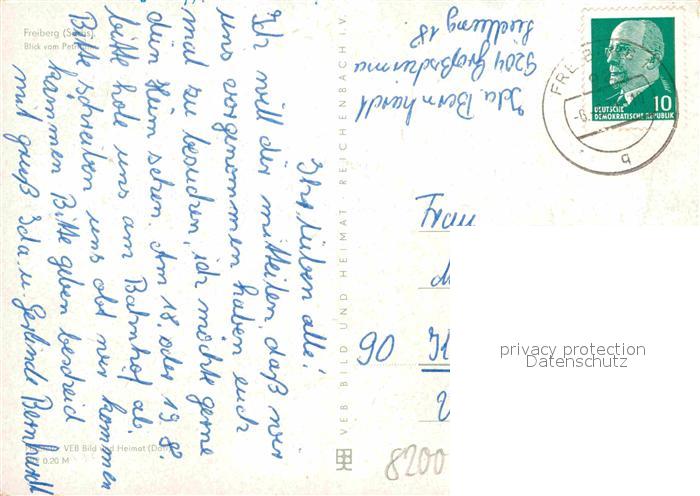 Freiberg (Sachs).
Blick vom Petriturm
Ihr lieben alle!
Ich will dir mitteilen, daß wir
uns vorgenommen haben euch
mal zu besuchen, ich möchte gerne
dein Heim sehen. Am 18. oder 19. 8.
bitte hole uns am Bahnhof ab.
Bitte schreiben uns obt wir kommen
kämmen Bitte geben bescheid
mit grüß Ida u. Gerlinde Bernhardt
VEB Bild und Heimat
0.20 M
VEB BILD UND HEIMAT · REICHENBACH I. V.
Ida Bernhardt
9204 Großschirma
Siedlung 18
DEUTSCHE
DEMOKRATISCHE REPUBLIK
10
FREIB
q
Frau
90
8200
privacy protection
Datenschutz